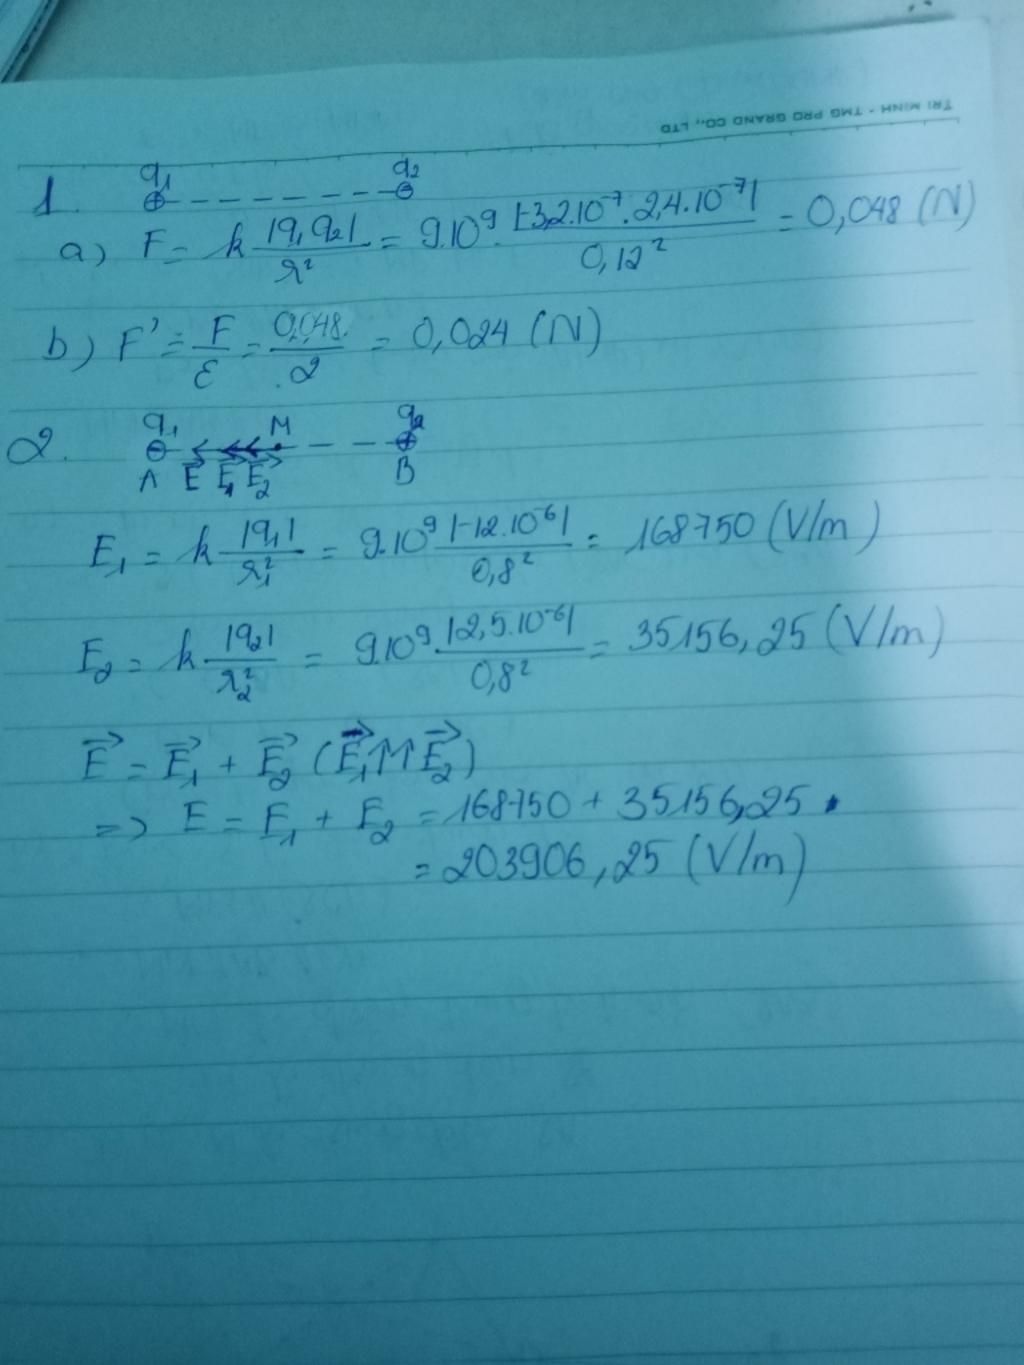 TRI MINH - TMG PRO GRAND CO., LTD
1. q₁ q₂
⊕ - - - - - - ⊖
a) F = k |q₁q₂| / r² = 9.10⁹. |-3,2.10⁻⁷.2,4.10⁻⁷| / 0,12² = 0,048 (N)
b) F' = F/ε = 0,048/2 = 0,024 (N)
2. q₁ M q₂
⊖ ⊕
A E⃗ E⃗₁ E⃗₂ B
E₁ = k |q₁| / r₁² = 9.10⁹ |-12.10⁻⁶| / 0,8² = 168750 (V/m)
E₂ = k |q₂| / r₂² = 9.10⁹. |2,5.10⁻⁶| / 0,8² = 35156,25 (V/m)
E⃗ = E⃗₁ + E⃗₂ (E⃗₁↑↑E⃗₂)
=> E = E₁ + E₂ = 168750 + 35156,25
= 203906,25 (V/m)